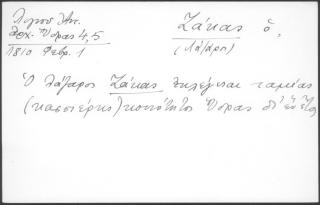 Λιγνοῦ Ἀντ.
Ἀρχ. Ὕδρας 4, 5
1810 Φεβρ. 1
Ζάκας ὁ,
(Λάζαρος)
Ὁ Λάζαρος Ζάκας ἐκλέγεται ταμίας
(κασσιέρης) κοινότητος Ὕδρας δι' ἓν ἔτος